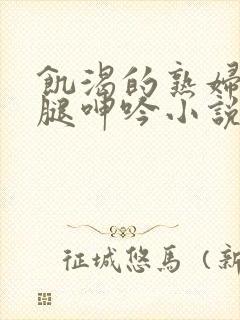 飢渴的熟婦
腿呻吟小說
征城悠馬（新